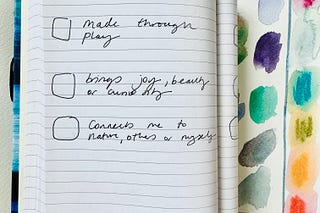 made through
play
brings joy, beauty
or curiosity
Connects me to
nature, others or myself